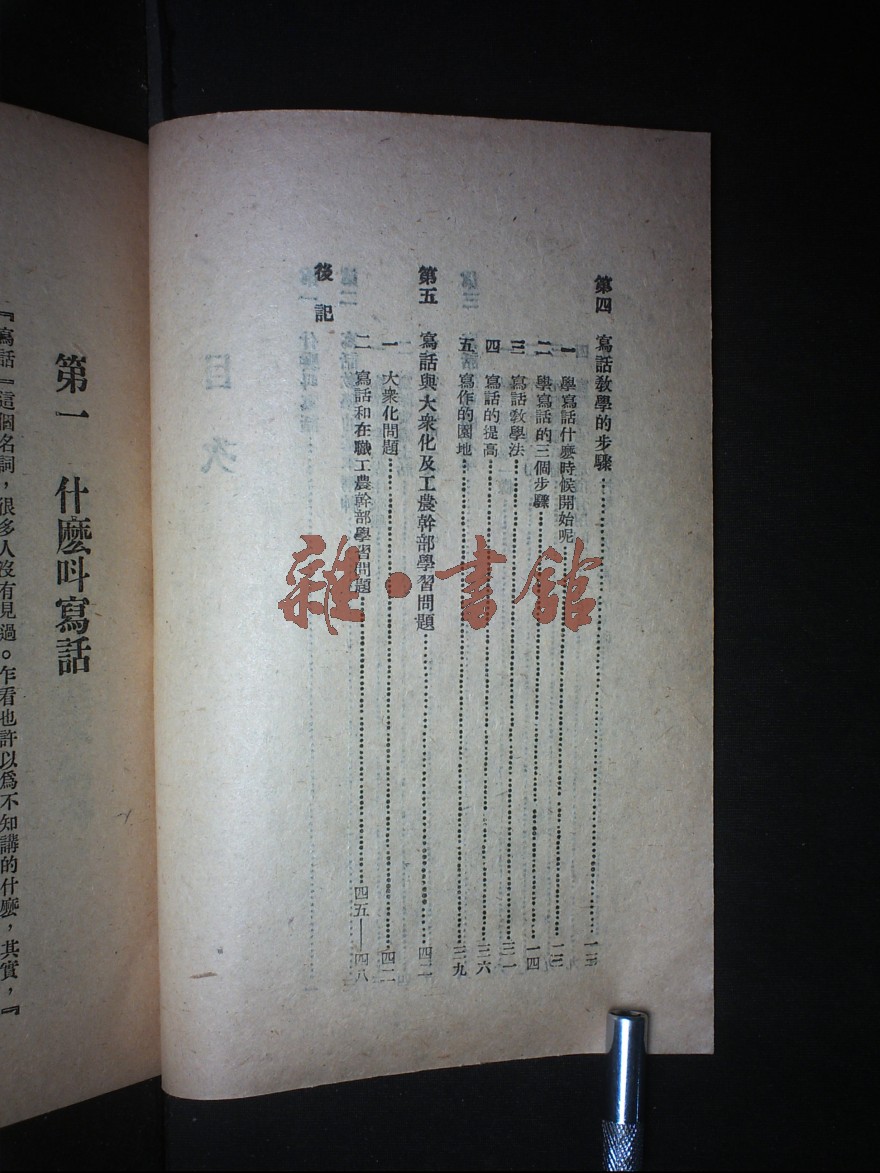 第四　寫話教學的步驟……一三
一　學寫話什麼時候開始呢……一三
二　學寫話的三個步驟……一四
三　寫話教學法……三一
四　寫話的提高……三六
五　寫作的園地……三九
第五　寫話與大衆化及工農幹部學習問題……四二
一　大衆化問題……四二
二　寫話和在職工農幹部學習問題……四五——四八
後記
雜·書館
第一　什麼叫寫話
『寫話』這個名詞，很多人沒有見過。乍看也許以爲不知講的什麼，其實，『